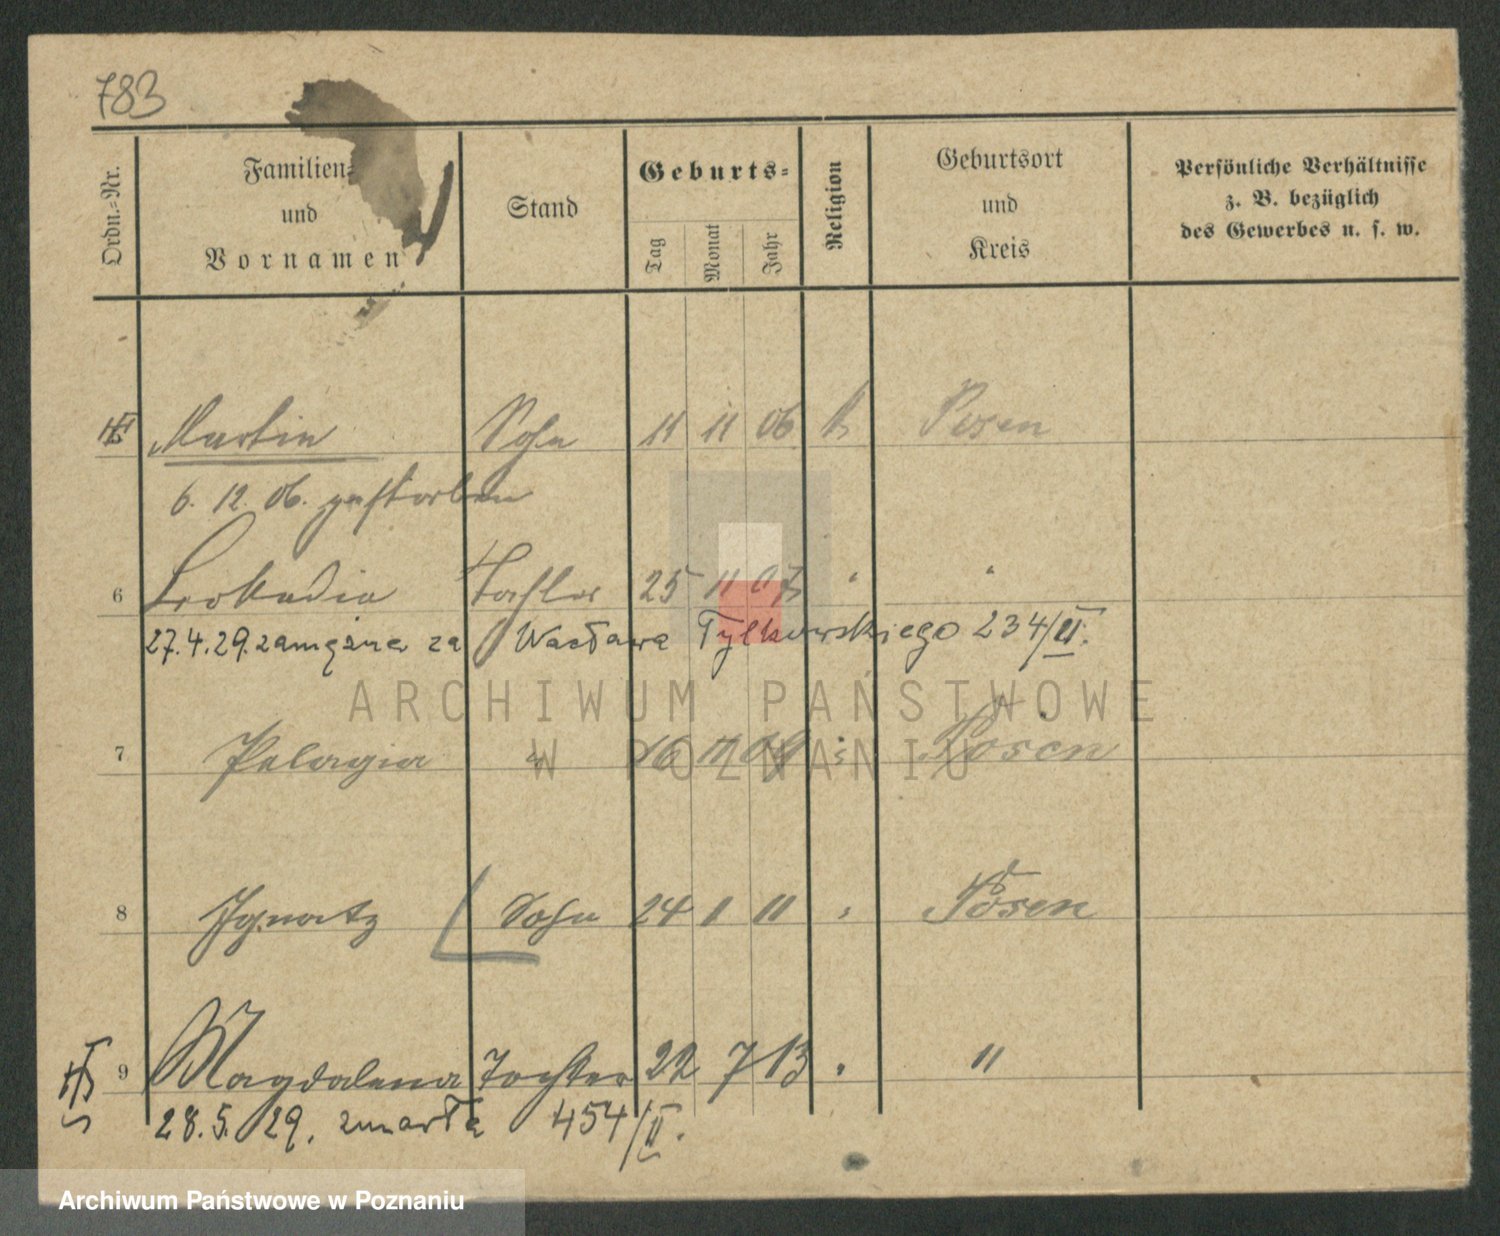 783
Ordn.-Nr.
Familien-
und
Vornamen
Stand
Geburts-
Tag
Monat
Jahr
Religion
Geburtsort
und
Kreis
Persönliche Verhältnisse
z. B. bezüglich
des Gewerbes u. s. w.
Martin Sohn 11 11 06 k Posen
6. 12. 06. gestorben
6 Leokadia Tochter 25 11 07 "
27.4.29. zamężna za Wacława Tylkowskiego 234/II.
ARCHIWUM PAŃSTWOWE
W POZNANIU
7 Pelagia " 16 11 Posen
8 Ignatz Sohn 24 1 11 " Posen
9 Magdalena Tochter 22 7 13 " "
28.5. 29. zmarła 454/II.
Archiwum Państwowe w Poznaniu